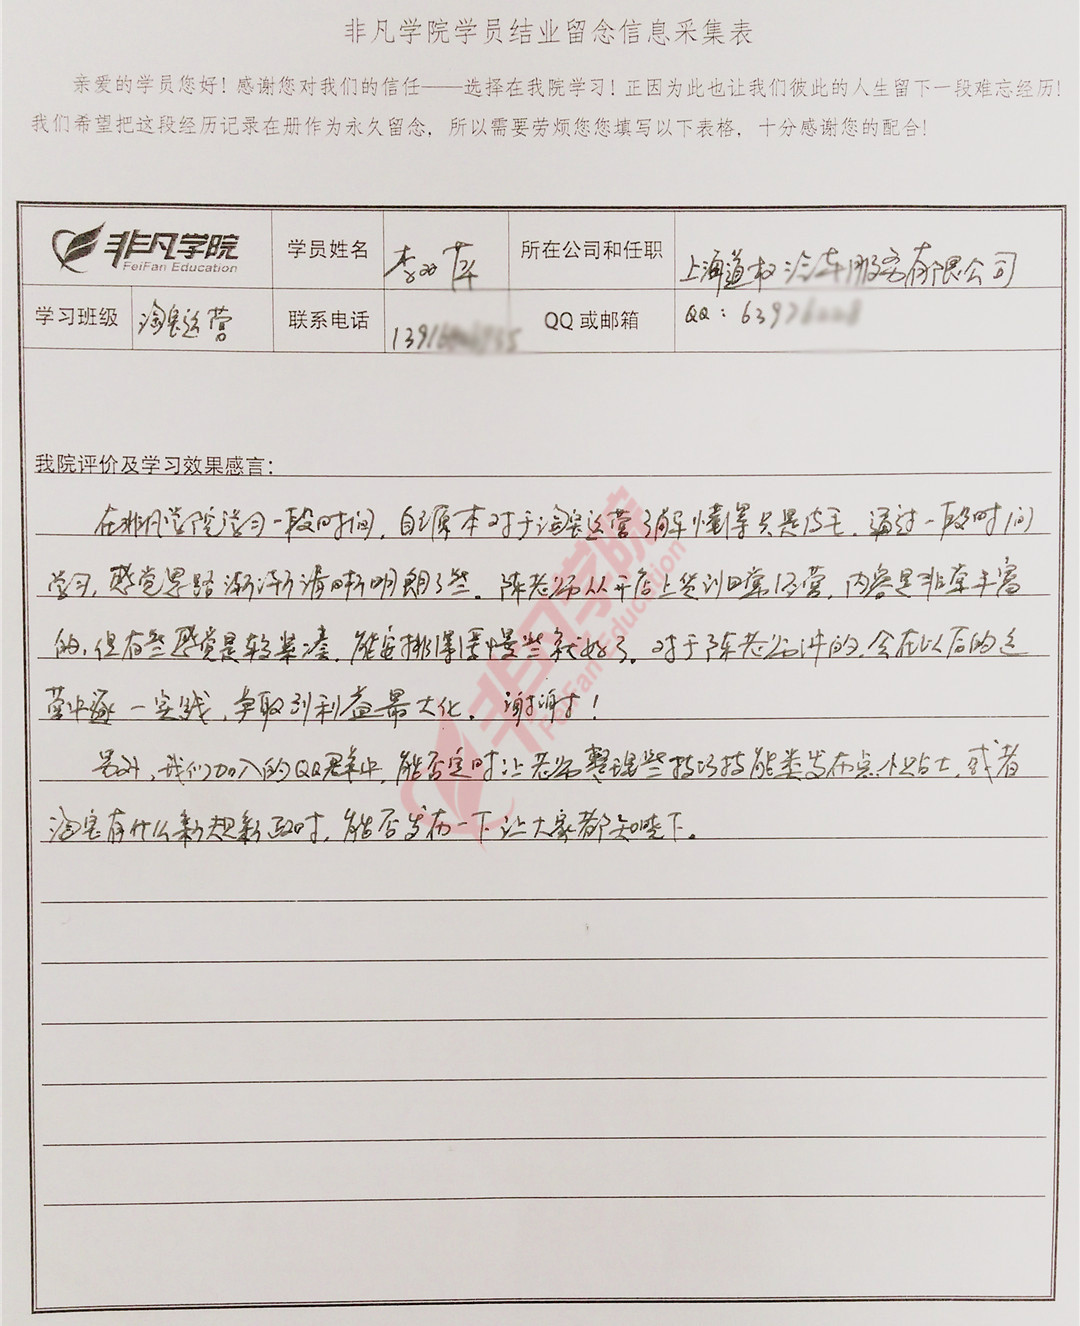 非凡学院学员结业留念信息采集表
亲爱的学员您好！感谢您对我们的信任——选择在我院学习！正因为此也让我们彼此的人生留下一段难忘经历！
我们希望把这段经历记录在册作为永久留念，所以需要劳烦您您填写以下表格，十分感谢您的配合！
非凡学院
FeiFan Education
学员姓名
李 萍
所在公司和任职
上海道 汽车服务有限公司
学习班级
淘宝运营
联系电话
1391
QQ或邮箱
QQ：6392
我院评价及学习效果感言：
在非凡学院学习一段时间，自原本对于淘宝运营了解懂得只是皮毛，通过一段时间
学习，感觉思路渐渐清晰明朗了些。陈老师从开店上货到日常经营，内容是非常丰富
的，但有些感觉是较紧凑，能安排得缓慢些就好了。对于陈老师讲的，会在以后的运
营中逐一实践，争取到利益最大化。谢谢！
另外，我们加入的QQ群中，能否定时让老师整理些技巧技能类发布点小贴士，或者
淘宝有什么新规新政时，能否发布一下让大家都知晓下。
非凡学院
FeiFan Education